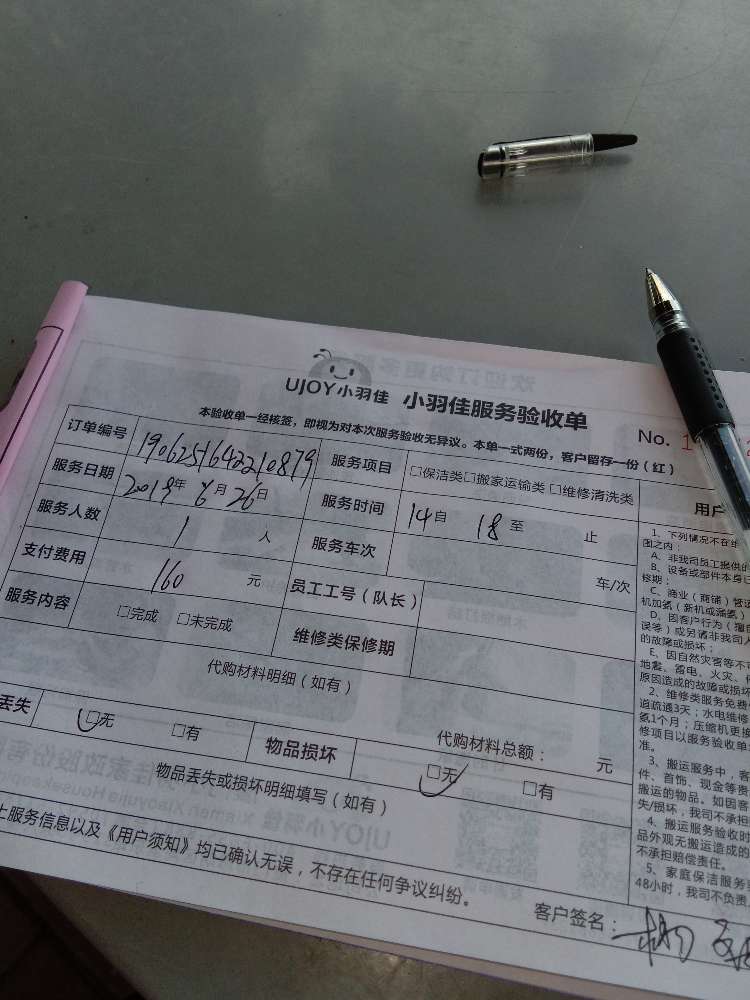 UJOY小羽佳 小羽佳服务验收单
No. 1
本验收单一经核签，即视为对本次服务验收无异议。本单一式两份，客户留存一份（红）
订单编号 1906251642210879 服务项目 □保洁类□搬家运输类□维修清洗类
服务日期 2019年6月26日 服务时间 14自18至 止
服务人数 1 人 服务车次 车/次
支付费用 160 元 员工工号（队长）
服务内容 □完成 □未完成 维修类保修期
代购材料明细（如有）
代购材料总额： 元
丢失 □无 □有 物品损坏 □无 □有
物品丢失或损坏明细填写（如有）
上服务信息以及《用户须知》均已确认无误，不存在任何争议纠纷。
客户签名：
用户
1、下列情况不在
围之内：
A、非我司员工提供的
B、设备或部件本身已
修期；
C、商业（商铺）管道
机加氨（新机或漏氨）
D、因客户行为（擅自
误等）或另请非我司人
的故障或损坏；
E、因自然灾害等不
地震、雷电、火灾、
原因造成的故障或损坏
2、维修类服务免费
道疏通3天；水电维修
氨1个月；压缩机更换
修项目以服务验收单
准。
3、搬运服务中，客
件、首饰、现金等贵
搬运的物品。如因客
失/损坏，我司不承担
4、搬运服务验收时
品外观无搬运造成的
不承担赔偿责任。
5、家庭保洁服务
48小时，我司不负责